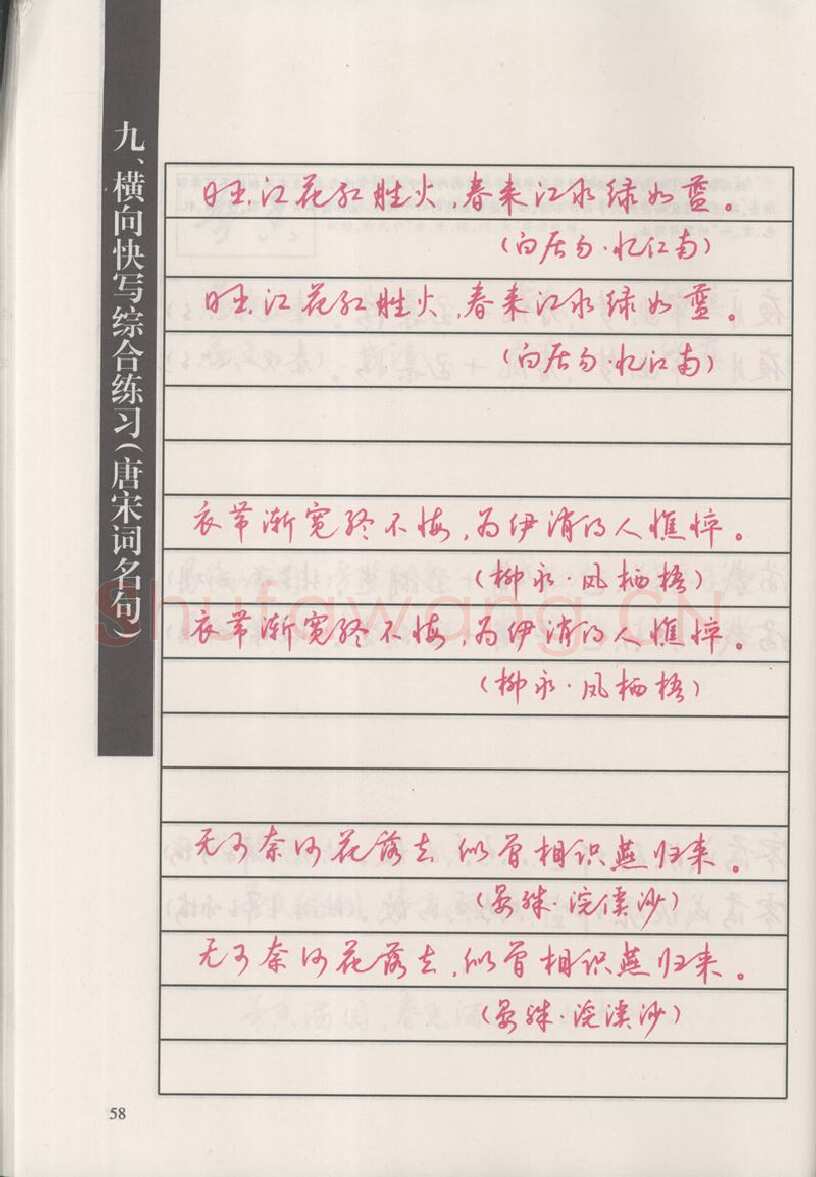 九、横向快写综合练习(唐宋词名句)
日出江花红胜火,春来江水绿如蓝。
(白居易·忆江南)
日出江花红胜火,春来江水绿如蓝。
(白居易·忆江南)
衣带渐宽终不悔,为伊消得人憔悴。
(柳永·凤栖梧)
衣带渐宽终不悔,为伊消得人憔悴。
(柳永·凤栖梧)
无可奈何花落去,似曾相识燕归来。
(晏殊·浣溪沙)
无可奈何花落去,似曾相识燕归来。
(晏殊·浣溪沙)
58
Shufawang.CN